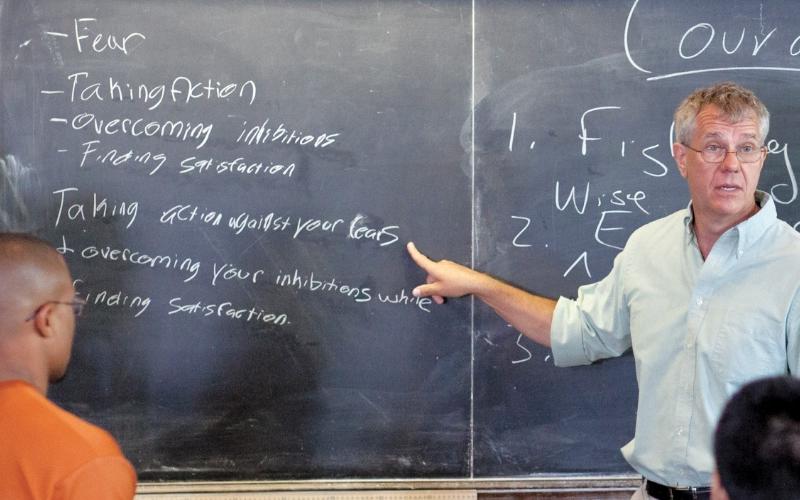 - Fear
- Taking Action
- Overcoming inhibitions
- Finding satisfaction
Taking action against your fears
+ overcoming your inhibitions while
finding satisfaction.
Our
1.
Wise
2.
3.